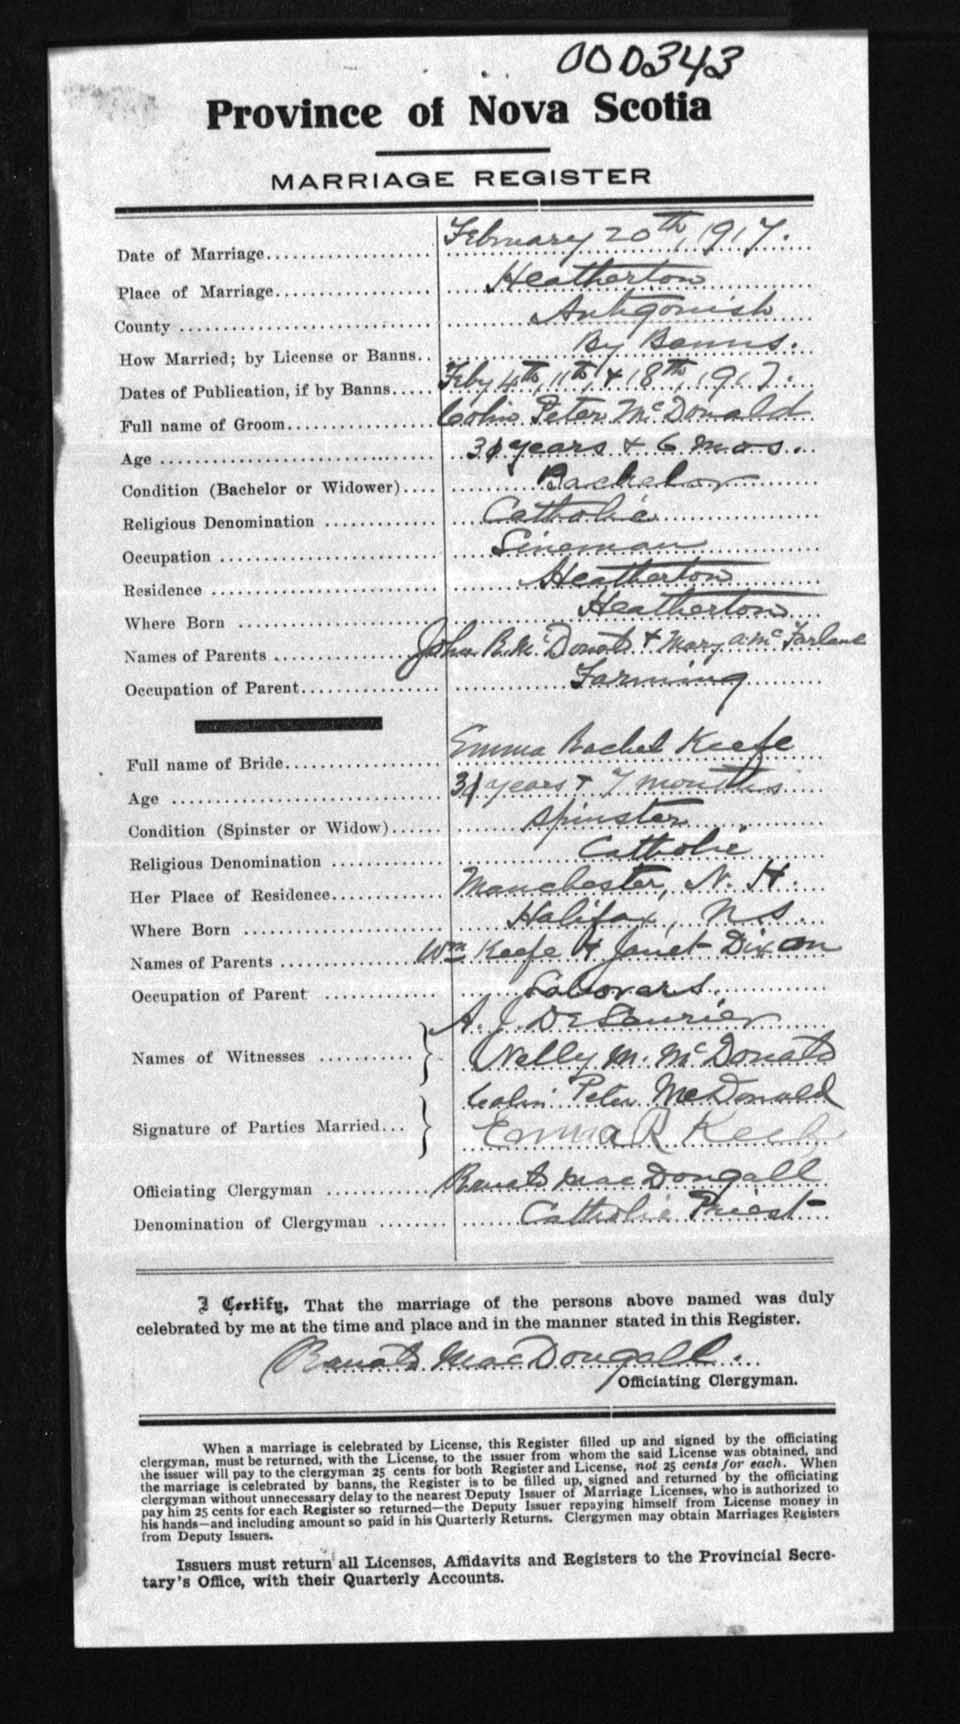 000343
Province of Nova Scotia
MARRIAGE REGISTER
Date of Marriage................... February 20th, 1917.
Place of Marriage.................. Heatherton
County ............................ Antigonish
How Married; by License or Banns.. By Banns.
Dates of Publication, if by Banns..... Feby 4th, 11th, & 18th, 1917.
Full name of Groom................. Colin Peter McDonald
Age ............................... years & 6 mos.
Condition (Bachelor or Widower).... Bachelor
Religious Denomination ............ Catholic
Occupation ........................ Lineman
Residence ......................... Heatherton
Where Born ........................ Heatherton
Names of Parents .................. John B. McDonald & Mary A. McFarlane
Occupation of Parent............... Farming
Full name of Bride................. Emma Rachel Keefe
Age ............................... years & 7 months
Condition (Spinster or Widow)...... Spinster
Religious Denomination ............ Catholic
Her Place of Residence............. Manchester, N. H.
Where Born ........................ Halifax, N.S.
Names of Parents .................. Wm Keefe & Janet Dixon
Occupation of Parent .............. Laborers.
Names of Witnesses ............ } A. J. DeLaurier
Nelly M. McDonald
Signature of Parties Married... } Colin Peter McDonald
Emma R Keefe
Officiating Clergyman ............. Ronald MacDougall
Denomination of Clergyman ........ Catholic Priest
I Certify, That the marriage of the persons above named was duly
celebrated by me at the time and place and in the manner stated in this Register.
Ronald MacDougall.
Officiating Clergyman.
When a marriage is celebrated by License, this Register filled up and signed by the officiating
clergyman, must be returned, with the License, to the issuer from whom the said License was obtained, and
the issuer will pay to the clergyman 25 cents for both Register and License, not 25 cents for each. When
the marriage is celebrated by banns, the Register is to be filled up, signed and returned by the officiating
clergyman without unnecessary delay to the nearest Deputy Issuer of Marriage Licenses, who is authorized to
pay him 25 cents for each Register so returned—the Deputy Issuer repaying himself from License money in
his hands—and including amount so paid in his Quarterly Returns. Clergymen may obtain Marriages Registers
from Deputy Issuers.
Issuers must return all Licenses, Affidavits and Registers to the Provincial Secre-
tary's Office, with their Quarterly Accounts.